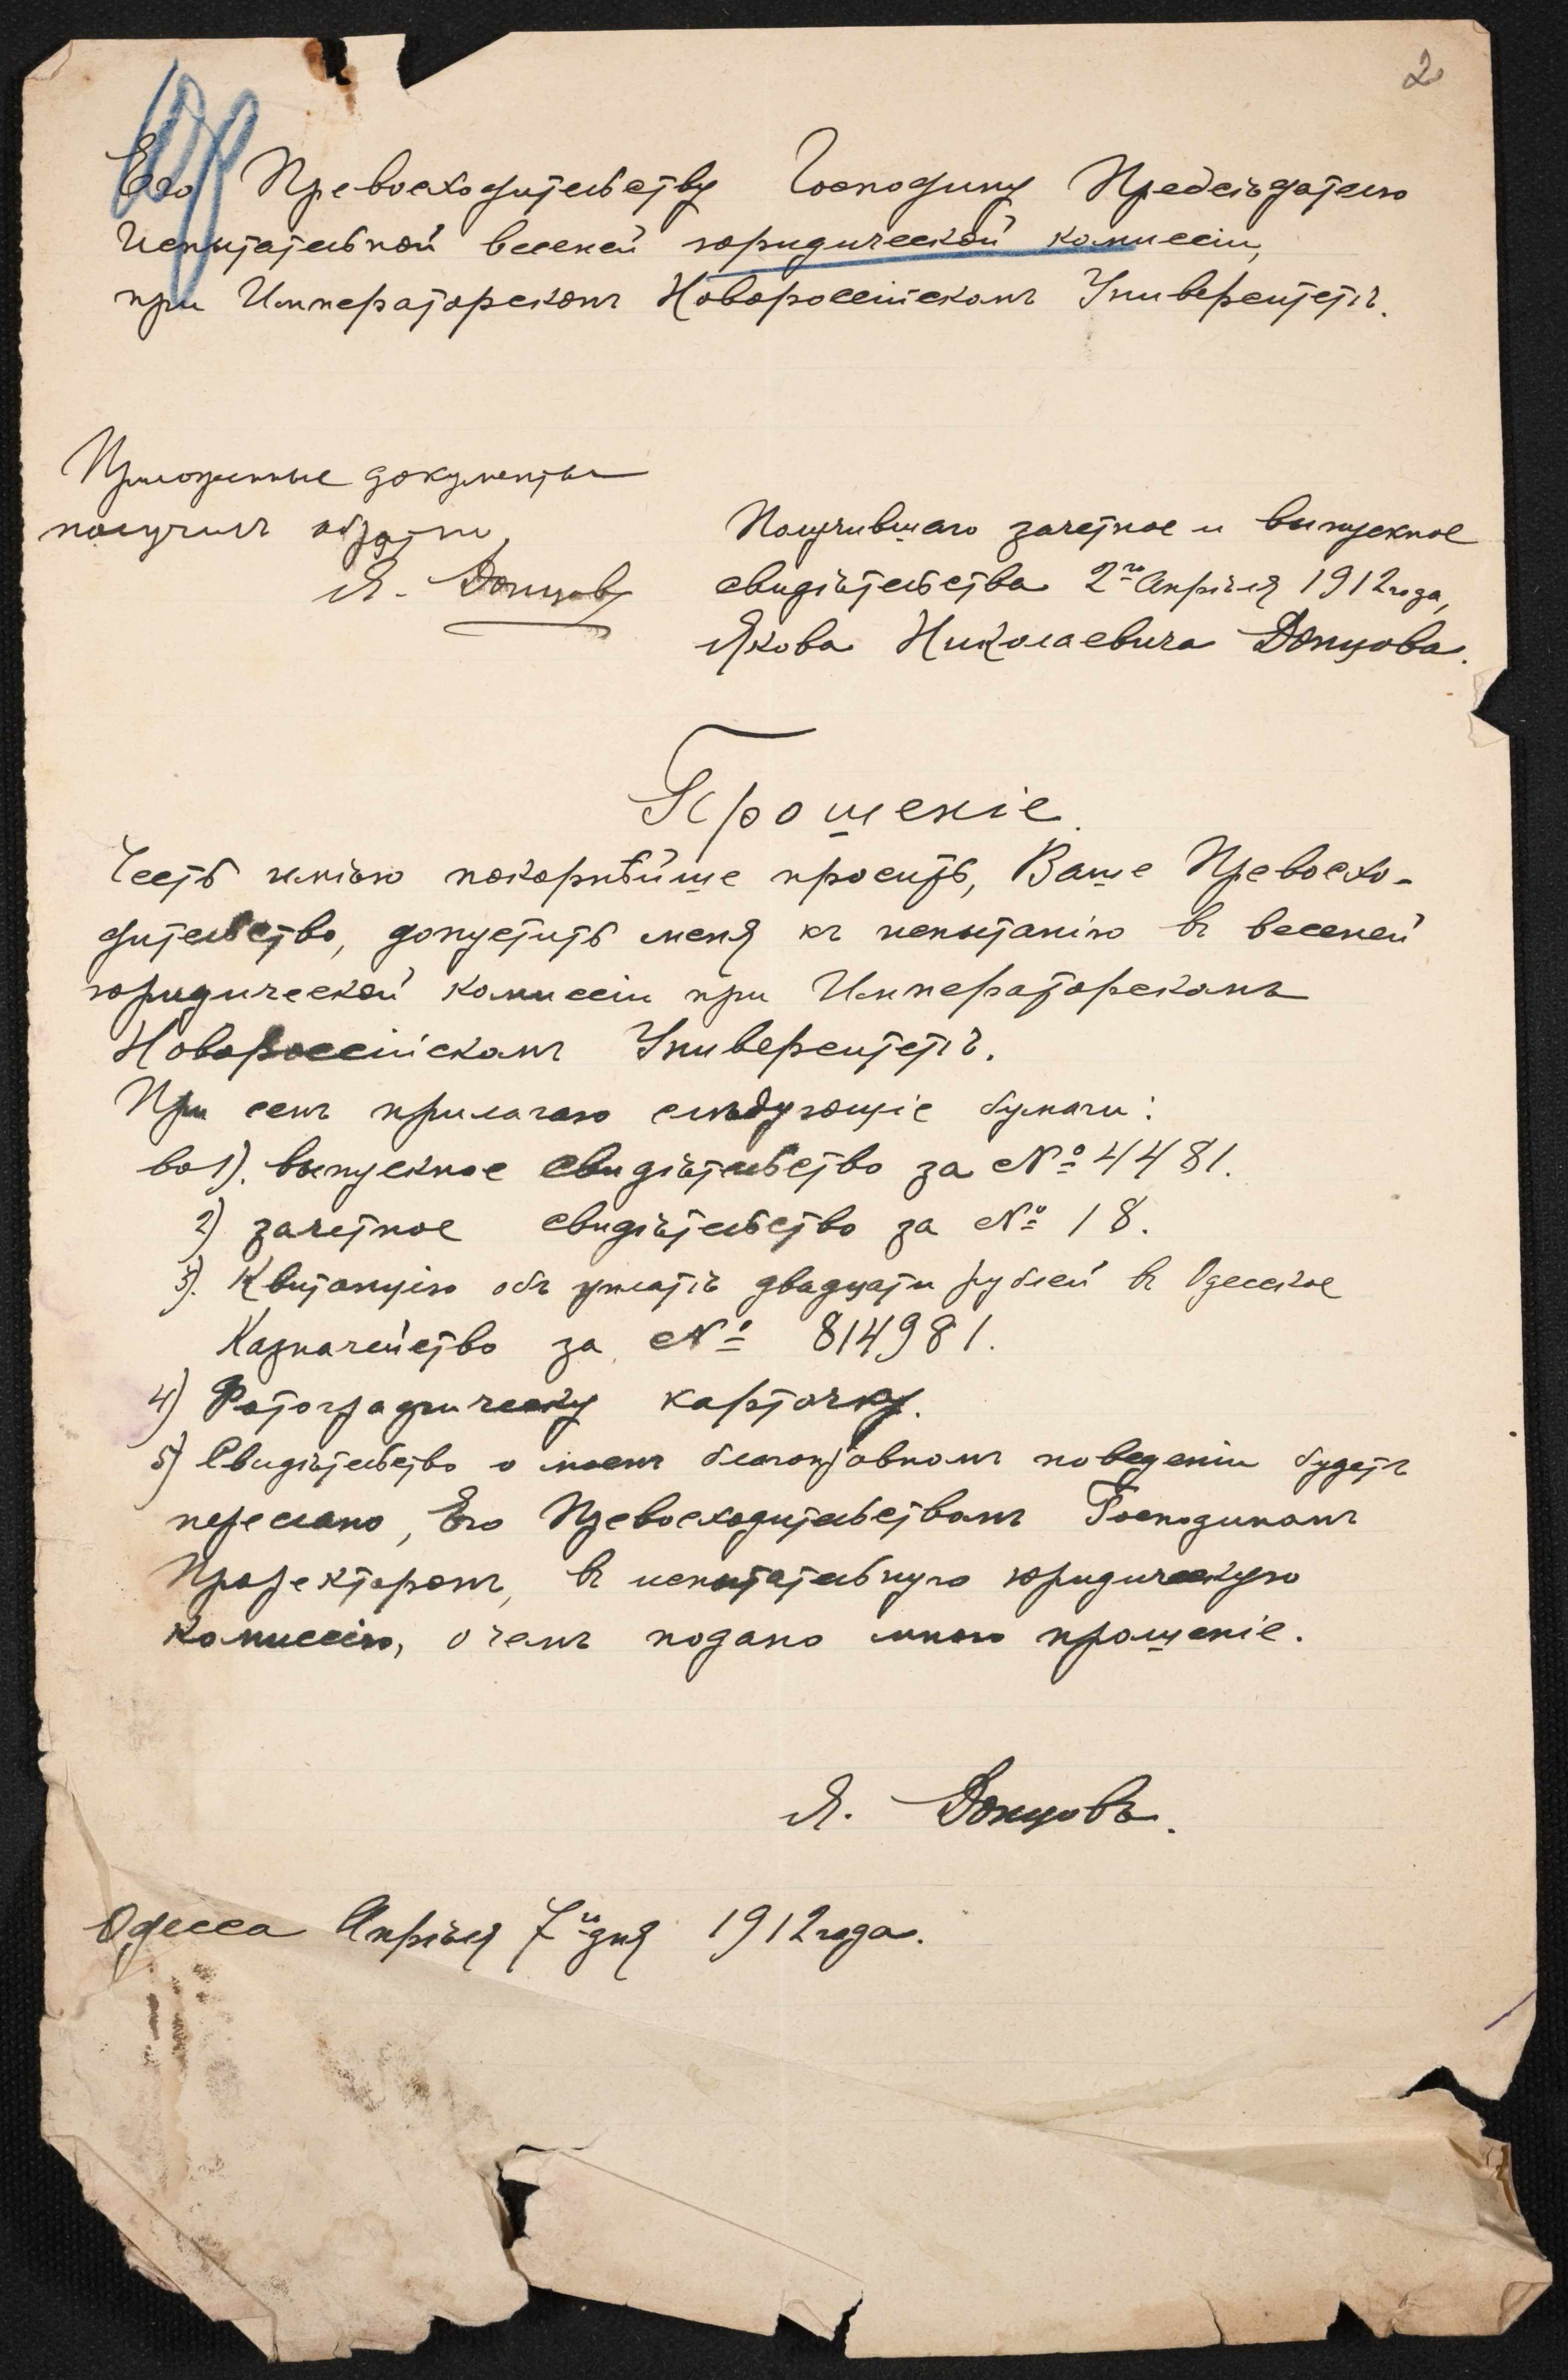 2
Его Превосходительству Господину Предсѣдателю
Испытательной весеней юридической комиссіи,
при Императорскомъ Новороссійскомъ Университетѣ.
Приложенные документы
получилъ обратно,
Я. Донцовъ
Получившаго зачетное и выпускное
свидѣтельства 2го Апрѣля 1912 года,
Якова Николаевича Донцова.
Прошеніе.
Честь имѣю покорнѣйше просить, Ваше Превосхо-
дительство, допустить меня къ испытанію въ весеней
юридической комиссіи при Императорскомъ
Новороссійскомъ Университетѣ.
При семъ прилагаю слѣдующіе бумаги:
во 1). выпускное свидѣтельство за № 4481.
2) зачетное свидѣтельство за № 18.
3). Квитанцію объ уплатѣ двадцати рублей въ Одесское
Казначейство за № 814981.
4) Фотографическу карточку.
5) Свидѣтельство о моемъ благонравномъ поведеніи будетъ
переслано, Его Превосходительствомъ Господиномъ
Проректоромъ, въ испытательную юридическую
комиссію, о чемъ подано мною прошеніе.
Я. Донцовъ.
Одесса Апрѣля 7го дня 1912 года.